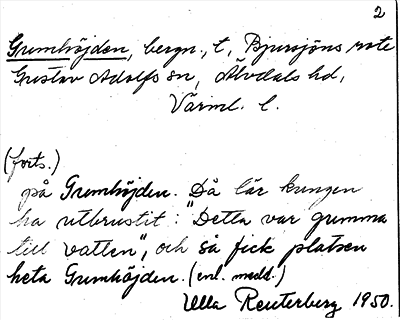 2
Grumhöjden, bergn., t, Bjursjöns rote
Gustav Adolfs sn, Älvdals hd,
Värml. l.
(forts.)
på Grumhöjden. Då lär kungen
ha utbrustit: "Detta var grumma
till vatten", och så fick platsen
heta Grumhöjden. (enl. medd.)
Ulla Reuterberg 1950.